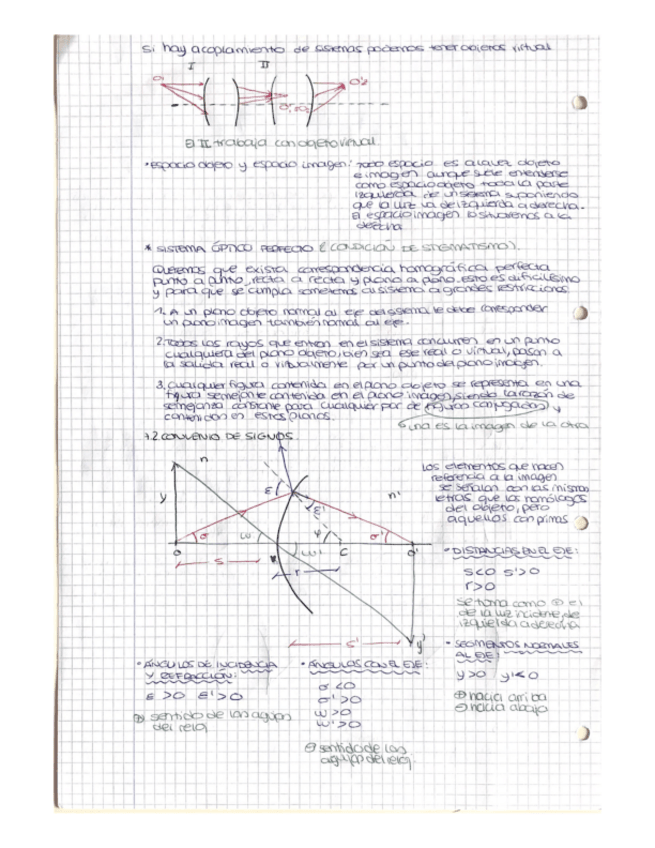 Si hay acoplamiento de sistemas podemos tener objetos virtual
I II
O O'1≡O2 O'2
El II trabaja con objeto virtual
• Espacio objeto y espacio imagen: Todo espacio es a la vez objeto
e imagen aunque suele entenderse
como espacio objeto toda la parte
izquierda de un sistema suponiendo
que la luz va de izquierda a derecha.
El espacio imagen lo situaremos a la
derecha
* SISTEMA ÓPTICO PERFECTO (CONDICIÓN DE STIGMATISMO).
Queremos que exista correspondencia homográfica perfecta
punto a punto, recta a recta y plano a plano, esto es dificilísimo
y para que se cumpla sometemos al sistema a grandes restricciones
1. A un plano objeto normal al eje del sistema le debe corresponder
un plano imagen también normal al eje.
2. Todos los rayos que entran en el sistema concurren en un punto
cualquiera del plano objeto, bien sea ese real o virtual, pasan a
la salida real o virtualmente por un punto del plano imagen.
3. Cualquier figura contenida en el plano objeto se representa en una
figura semejante contenida en el plano imagen, siendo la razón de
semejanza constante para cualquier par de figuras conjugadas y
contenidas en estos planos.
una es la imagen de la otra
1.2 CONVENIO DE SIGNOS.
n n'
y ε ε'
σ ω ω' φ σ'
O C O'
s r
s' y'
Los elementos que hacen
referencia a la imagen
se señalan con las mismas
letras que los homólogos
del objeto, pero
aquellos con primas
• DISTANCIAS EN EL EJE:
s<0 s'>0
r>0
Se toma como ⊕ el
de la luz incidente, de
izquierda a derecha
• SEGMENTOS NORMALES
AL EJE:
y>0 y'<0
⊕ hacia arriba
⊖ hacia abajo
• ÁNGULOS DE INCIDENCIA
Y REFRACCIÓN:
ε >0 ε'>0
⊕ sentido de las agujas
del reloj
• ÁNGULOS CON EL EJE:
σ <0
σ'>0
ω>0
ω'>0
⊖ sentido de las
agujas del reloj